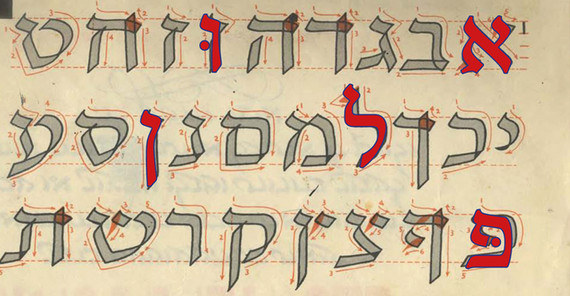 אבגדהוּזחט
יכךלמםנןסע
פּףצץקרשת